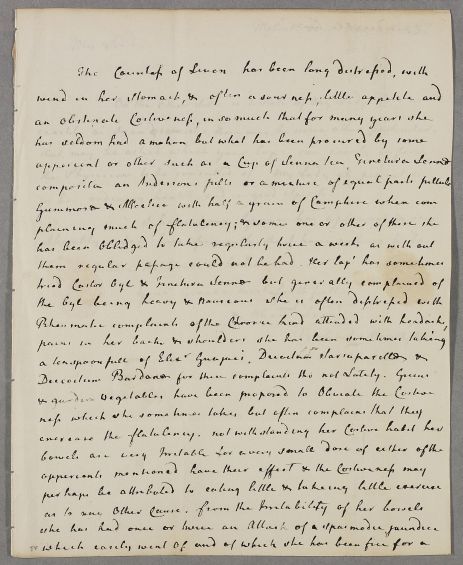 The Countess of Leven has been long distressed, with
wind in her Stomach, & often a sourness, little appetite and
an obstinate Costiveness, in so much that for many years she
has seldom had a motion but what has been procured by some
apperient or other such as a Cup of Senna tea, Tinctura Sennæ
composita an Andersons pills or a mixture of equal parts pillulæ
Gummosæ & with half a grain of Camphire when com
plaining much of flatulency; & some one or other of these she
has been Obbidged to take regularly twice a week as with out
them regular passage could not be had. Her Lap has sometimes
tried Castor Oyl & Tinctura Sennæ but generally complained of
the Oyl being heavy & Nauseous She is often distressed with
Rheumatic complaints of the Chronic kind attended with headachs,
pains in her back & shoulders she has been sometimes taking
a teaspoonfull of Elixr Guaiaci, Decoctum Sarsaparillæ &
Decoctum Bardanæ for these complaints tho not Lately. Greens
& garden vegetables have been proposed to Obviate the Costive
ness which she sometimes takes but often complains that they
encrease the flatulency. notwithstanding her Costive habit her
bowels are very Irritable for a very small dose of either of the
apperients mentioned have their effect & the Costiveness may
perhaps be attributed to eating little & takeing little exercise
as to any Other Cause. from the Irritability of her bowels
she has had once or twice an Attack of a spasmodic jaundice
which easily went of and of which she has been free for a